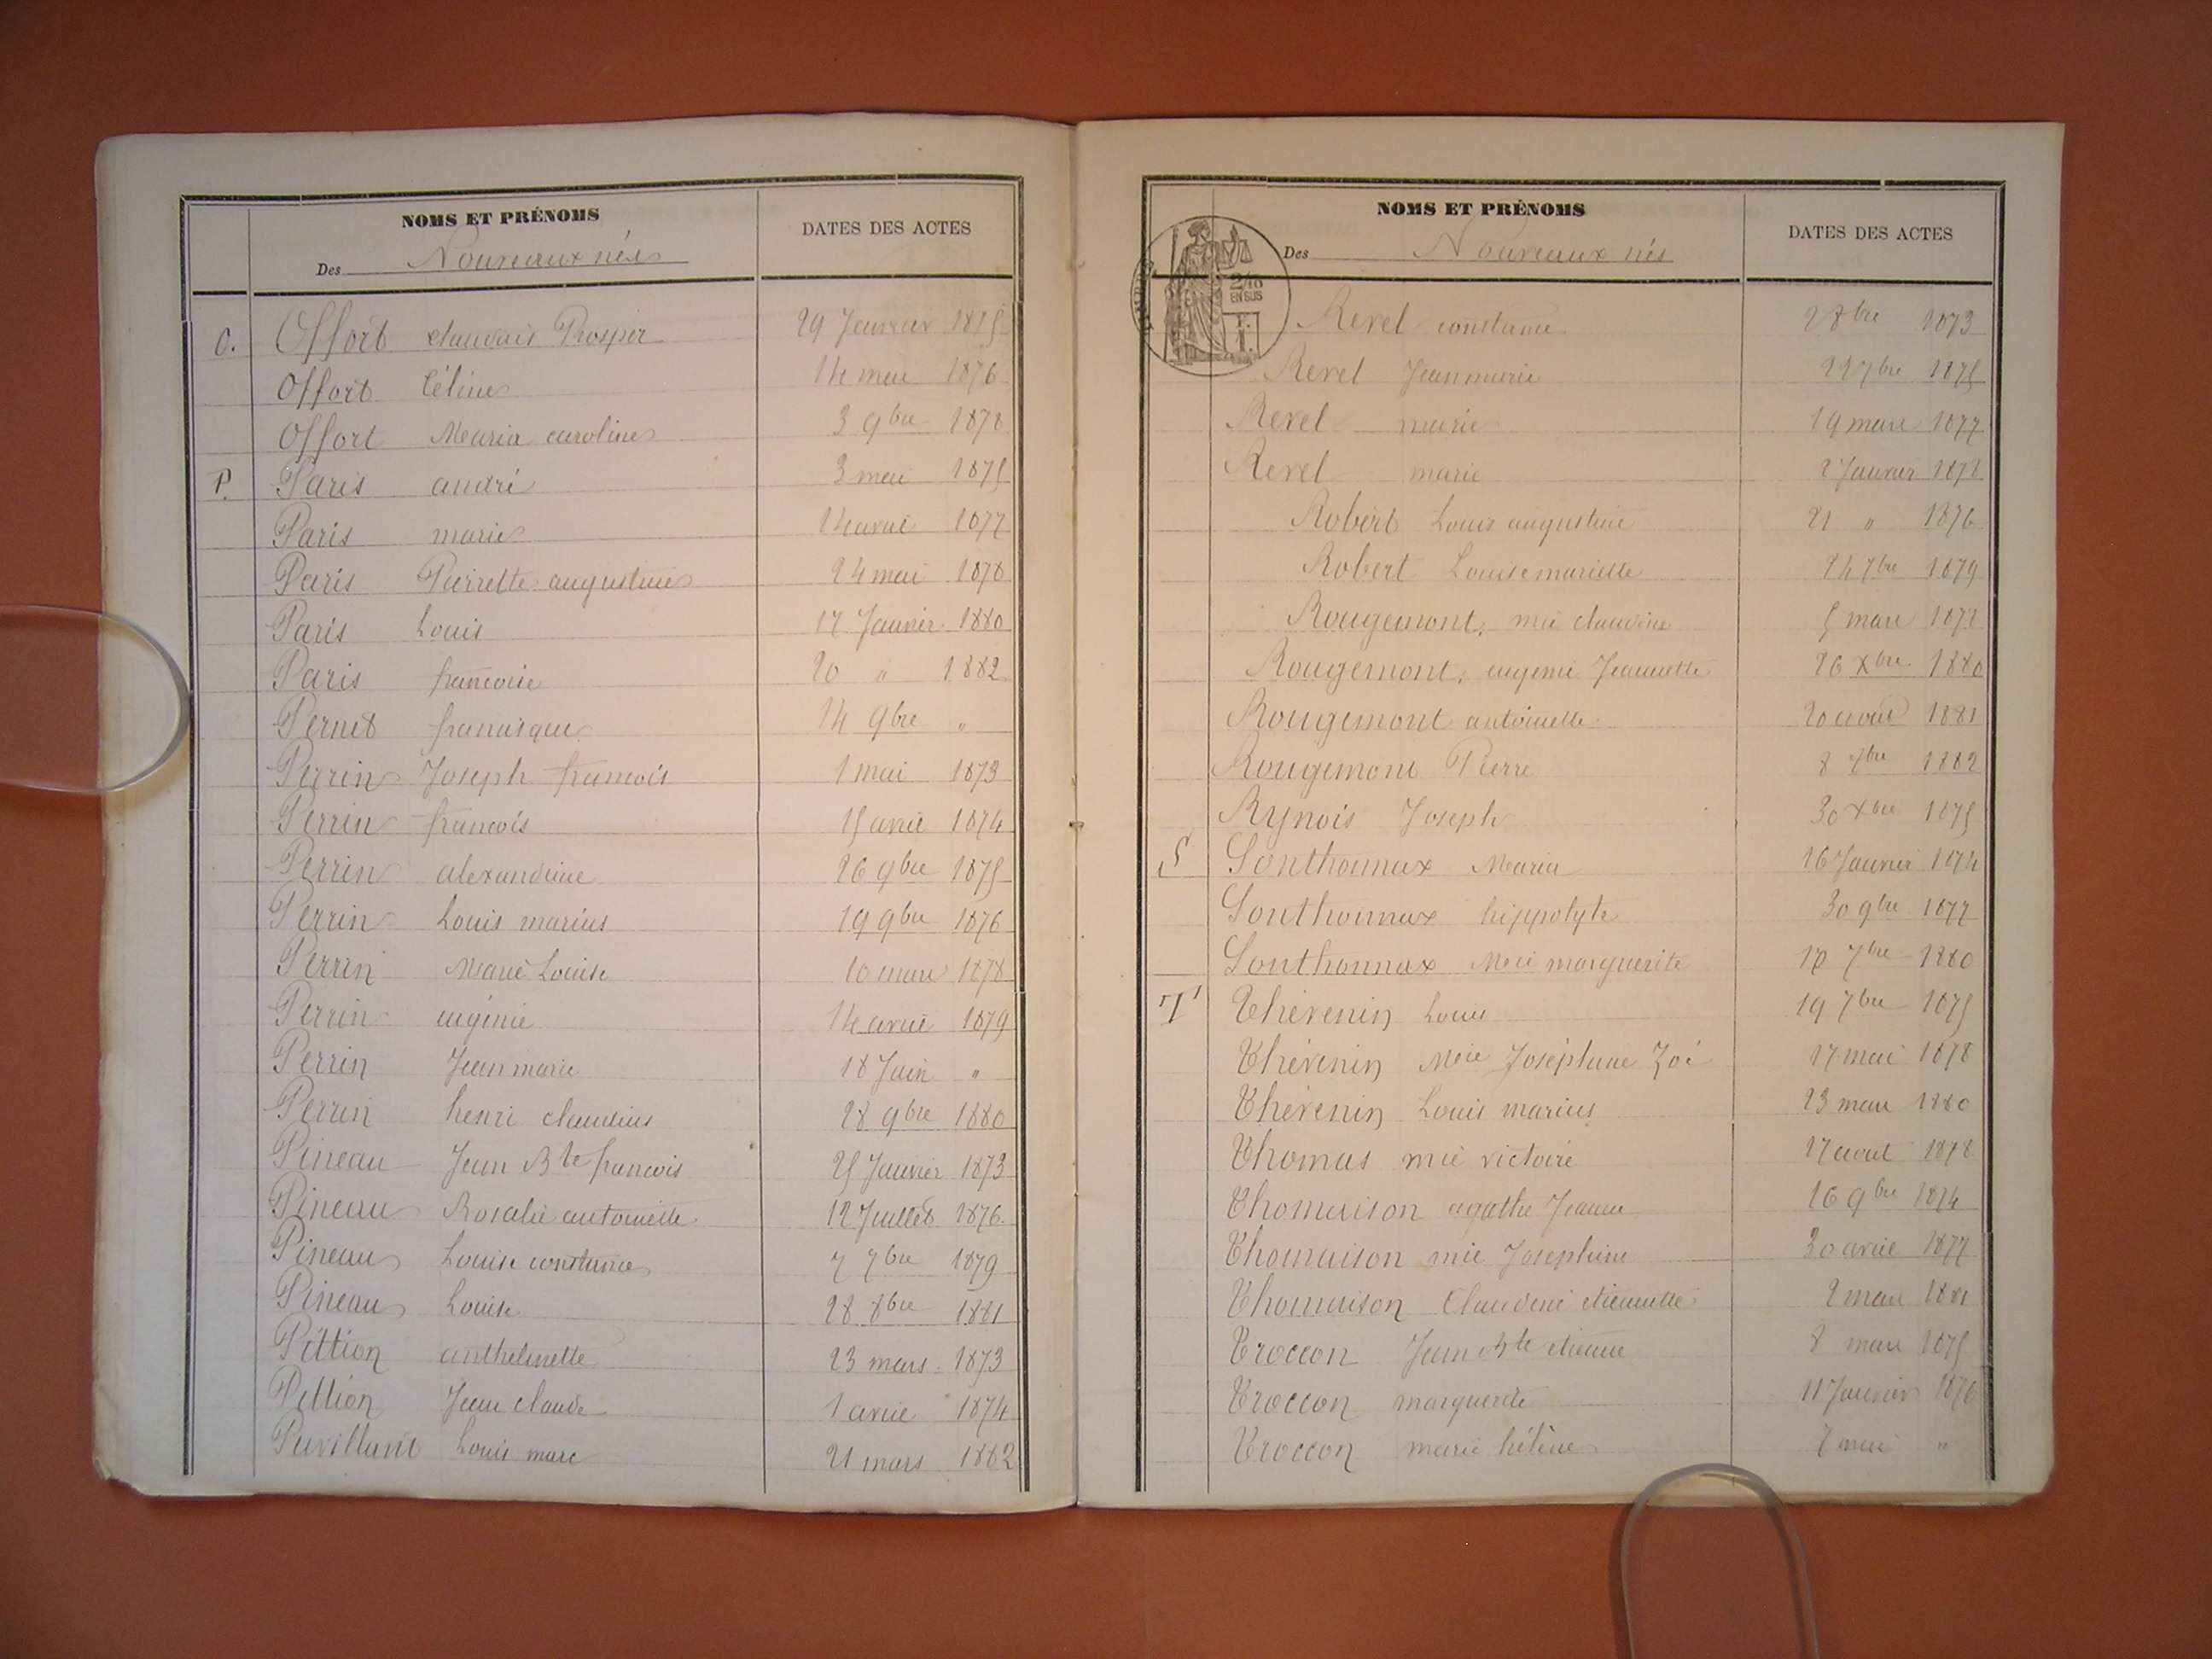 NOMS ET PRÉNOMS
DATES DES ACTES
Des Nouveaux nés
O. Offort claudais Prosper 29 Janvier 1875
Offort Céline 14 mai 1876
Offort Maria caroline 3 9bre 1878
P. Paris andré 3 mai 1875
Paris marie 14 avril 1877
Paris Pierrette augustine 24 mai 1878
Paris Louis 17 Janvier 1880
Paris francoise 20 " 1882
Pernet francisque 14 9bre "
Perrin Joseph francois 1 mai 1873
Perrin francois 15 avril 1874
Perrin alexandrine 26 9bre 1875
Perrin Louis marius 19 9bre 1876
Perrin Marie Louise 10 mars 1878
Perrin eugénie 14 avril 1879
Perrin Jean marie 18 Juin "
Perrin henri claudius 28 9bre 1880
Pineau Jean Bte francois 25 Janvier 1873
Pineau Rosalie antoinette 12 Juillet 1876
Pineau Louise constance 7 7bre 1879
Pineau Louise 28 8bre 1881
Pittion anthelmette 23 mars 1873
Pittion Jean claude 1 avril 1874
Puvilland Louis marc 21 mars 1882
NOMS ET PRÉNOMS
DATES DES ACTES
Des Nouveaux nés
2/10
EN SUS
Revel constance 2 8bre 1873
Revel Jean marie 22 7bre 1875
Revel marie 19 mars 1877
Revel marie 2 Janvier 1878
Robert Louis augustin 21 " 1876
Robert Louise mariette 24 7bre 1879
Rougemont, mie claudine 5 mars 1877
Rougemont, eugenie Jeannette 26 Xbre 1880
Rougemont antoinette 20 aout 1881
Rougemont Pierre 8 7bre 1882
Rynois Joseph 30 Xbre 1875
S Sonthonnax Maria 16 Janvier 1874
Sonthonnax hippolyte 30 9bre 1877
Sonthonnax Mie marguerite 7bre 1880
T Thévenin Louis 19 7bre 1875
Thévenin Mie Joséphine Zoé 17 mai 1878
Thévenin Louis marius 23 mars 1880
Thomas mie victoire 17 aout 1878
Thomaison agathe Jeanne 16 9bre 1874
Thomaison mie Josephine 30 avril 1877
Thomaison Claudine etiennette 2 mars 1881
Troccon Jean Bte etienne 8 mars 1875
Troccon marguerite 11 Janvier 1876
Troccon marie hélène 7 mai "